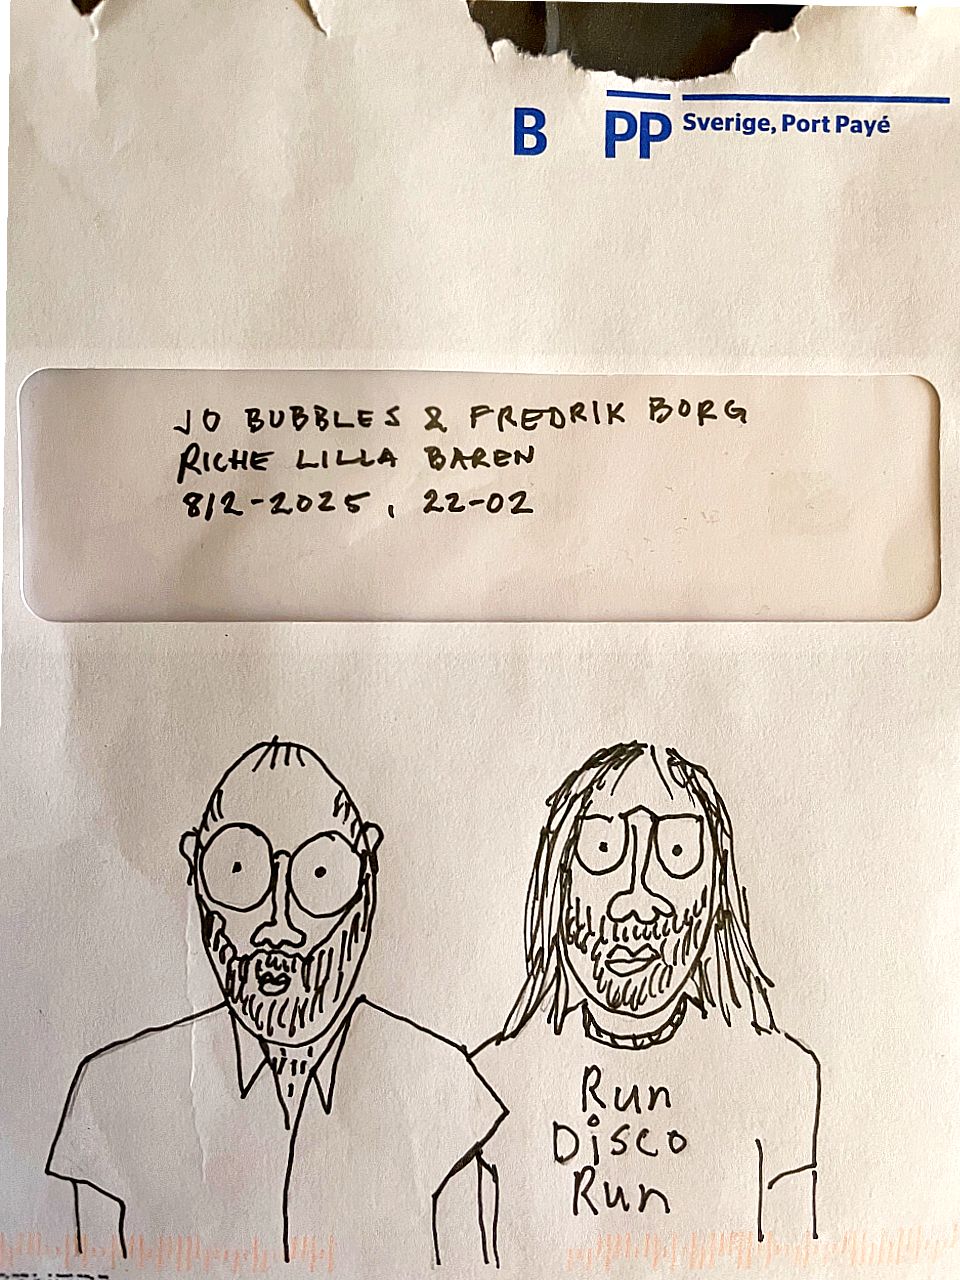 B PP Sverige, Port Payé
JO BUBBLES & FREDRIK BORG
RICHE LILLA BAREN
8/2-2025, 22-02
Run
Disco
Run